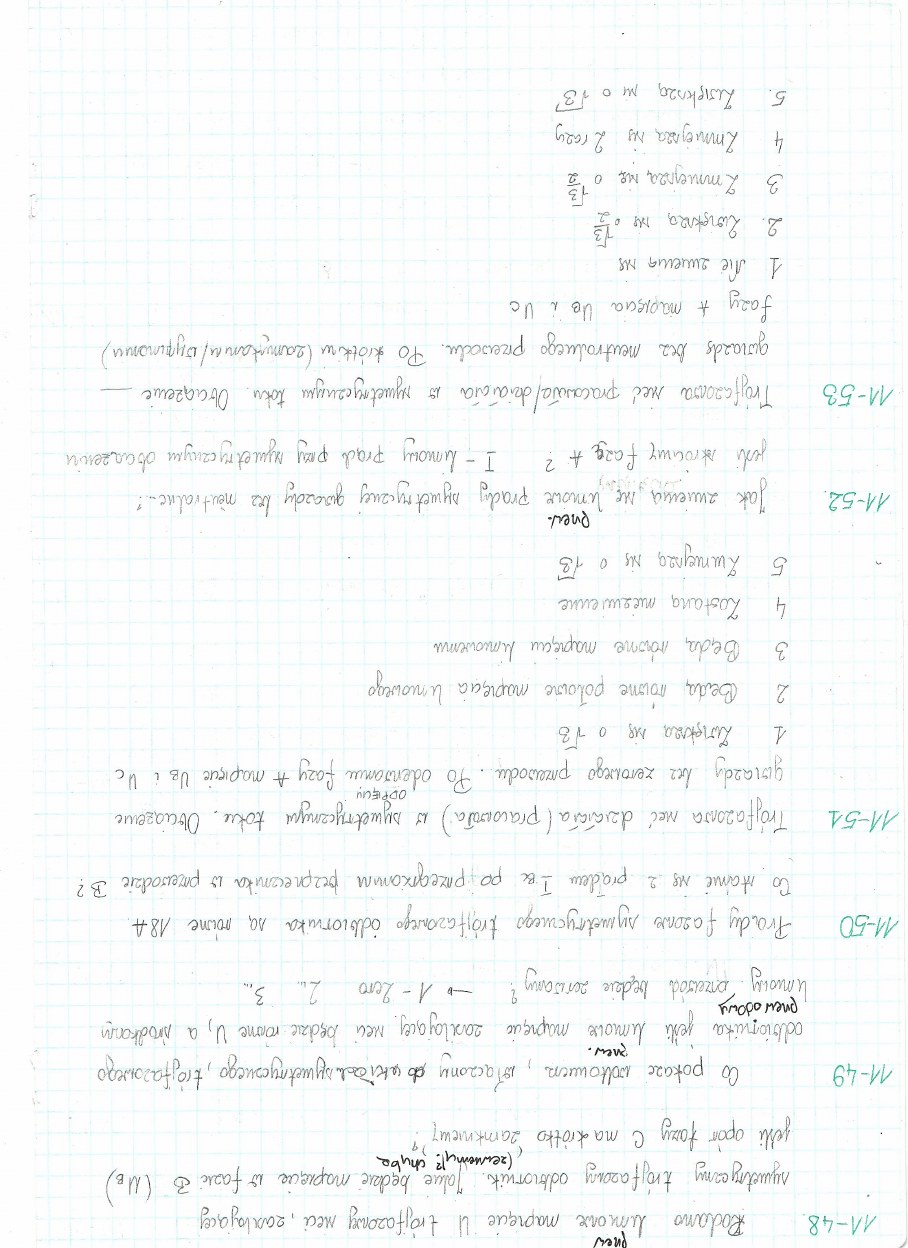 przew
11-48 Podamo liniowe napięcie U trójfazowej sieci, zasilającej
symetryczny trójfazowy odbiornik. Jakie będzie napięcie w fazie B (UB)
(zewnemy? chyba
jeśli opór fazy C na krótko zamkniemy?
11-49 Co pokaże woltomierz, włączony symetrycznego, trójfazowego
przew.
odbiornika jeśli liniowe napięcie zasilającej sieci będzie równe U, a środkowy
przewodowy
liniowy przewód będzie zerwany? → 1-Zero 2.. 3..
11-50 Prądy fazowe symetrycznego trójfazowego odbiornika są równe 18A.
Co stanie się z prądem I po przegrzaniu bezpiecznika w przewodzie B?
11-51 Trójfazowa sieć działała (pracowała) w symetrycznym toku. Obciążenie
ODPIĘCIU
gwiazdy bez zerowego przewodu. Po oderwaniu fazy A napięcie UB i UC
1 Zwiększą się o √3
2 Będą równe połowie napięcia liniowego
3 Będą równe napięciu liniowemu
4 Zostaną niezmienne
5 Zmniejszą się o √3
przew.
11-52. Jak zmienią się liniowe prądy symetrycznej gwiazdy bez neutralne..?
jeśli skrócimy fazę A? I - liniowy prąd przy symetrycznym obciążeniu
11-53 Trójfazowa sieć pracowała/działała w symetrycznym toku. Obciążenie —
gwiazda bez neutralnego przewodu. Po krótkim (zamykaniu/wypinaniu)
fazy A napięcia UB i UC
1 Nie zmienią się
2. Zwiększą się o √3/2
3 Zmniejszą się o √3/2
4 Zmniejszą się 2 razy
5. Zwiększą się o √3